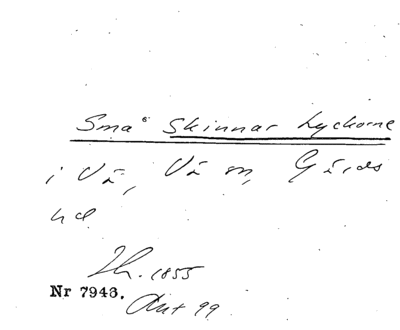 Små Skinnar Lyckorne
i Vä, Vä sn, Gärds
hd
Th. 1855
Nr 7943.
Ant 99